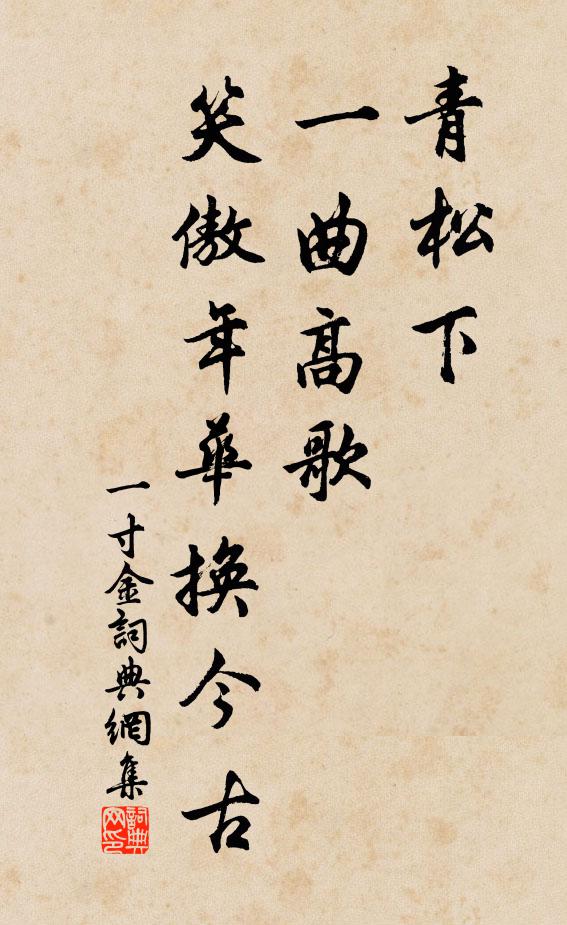 青松下
一曲高歌
笑傲年華換今古
一寸金詞典網集
詞典網印